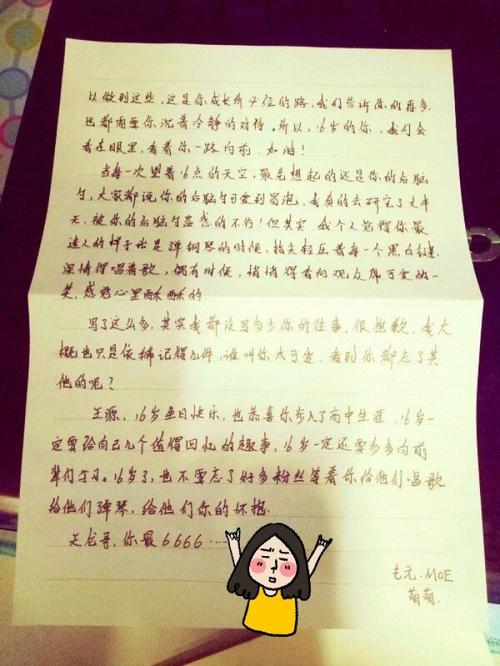 以做到这些，这是你成长所必经的路，我们告诉你的再多
也都需要你沉着冷静的对待。所以，16岁的你，我们会
看在眼里，看着你一路向前，加油！
当每一次望着16点的天空，最先想起的还是你的后脑
勺，大家都说你的后脑勺可爱到冒泡，我真的去研究了大半
天，被你的后脑勺蛊惑的不行！但其实，我个人觉得你最
迷人的样子让是弹钢琴的时候，指尖轻压着每一个黑白键，
深情得唱着歌，偶有时候，悄悄得看向观众席可爱的一
笑，感觉心里酥酥的
写了这么多，其实我都没写多少你的往事，很抱歉，我大
概也只是依稀记得几件，谁叫你太可爱，看到你都忘了其
他的呢？
王源，16岁生日快乐，也恭喜你步入了高中生涯，16岁一
定要给自己几个值得回忆的趣事，16岁一定还要多多向前
辈们学习。16岁了，也不要忘了好多粉丝等着你给他们唱歌
给他们弹琴，给他们你的怀抱.
关龙哥，你最6666……
七元.MOE
萌萌.